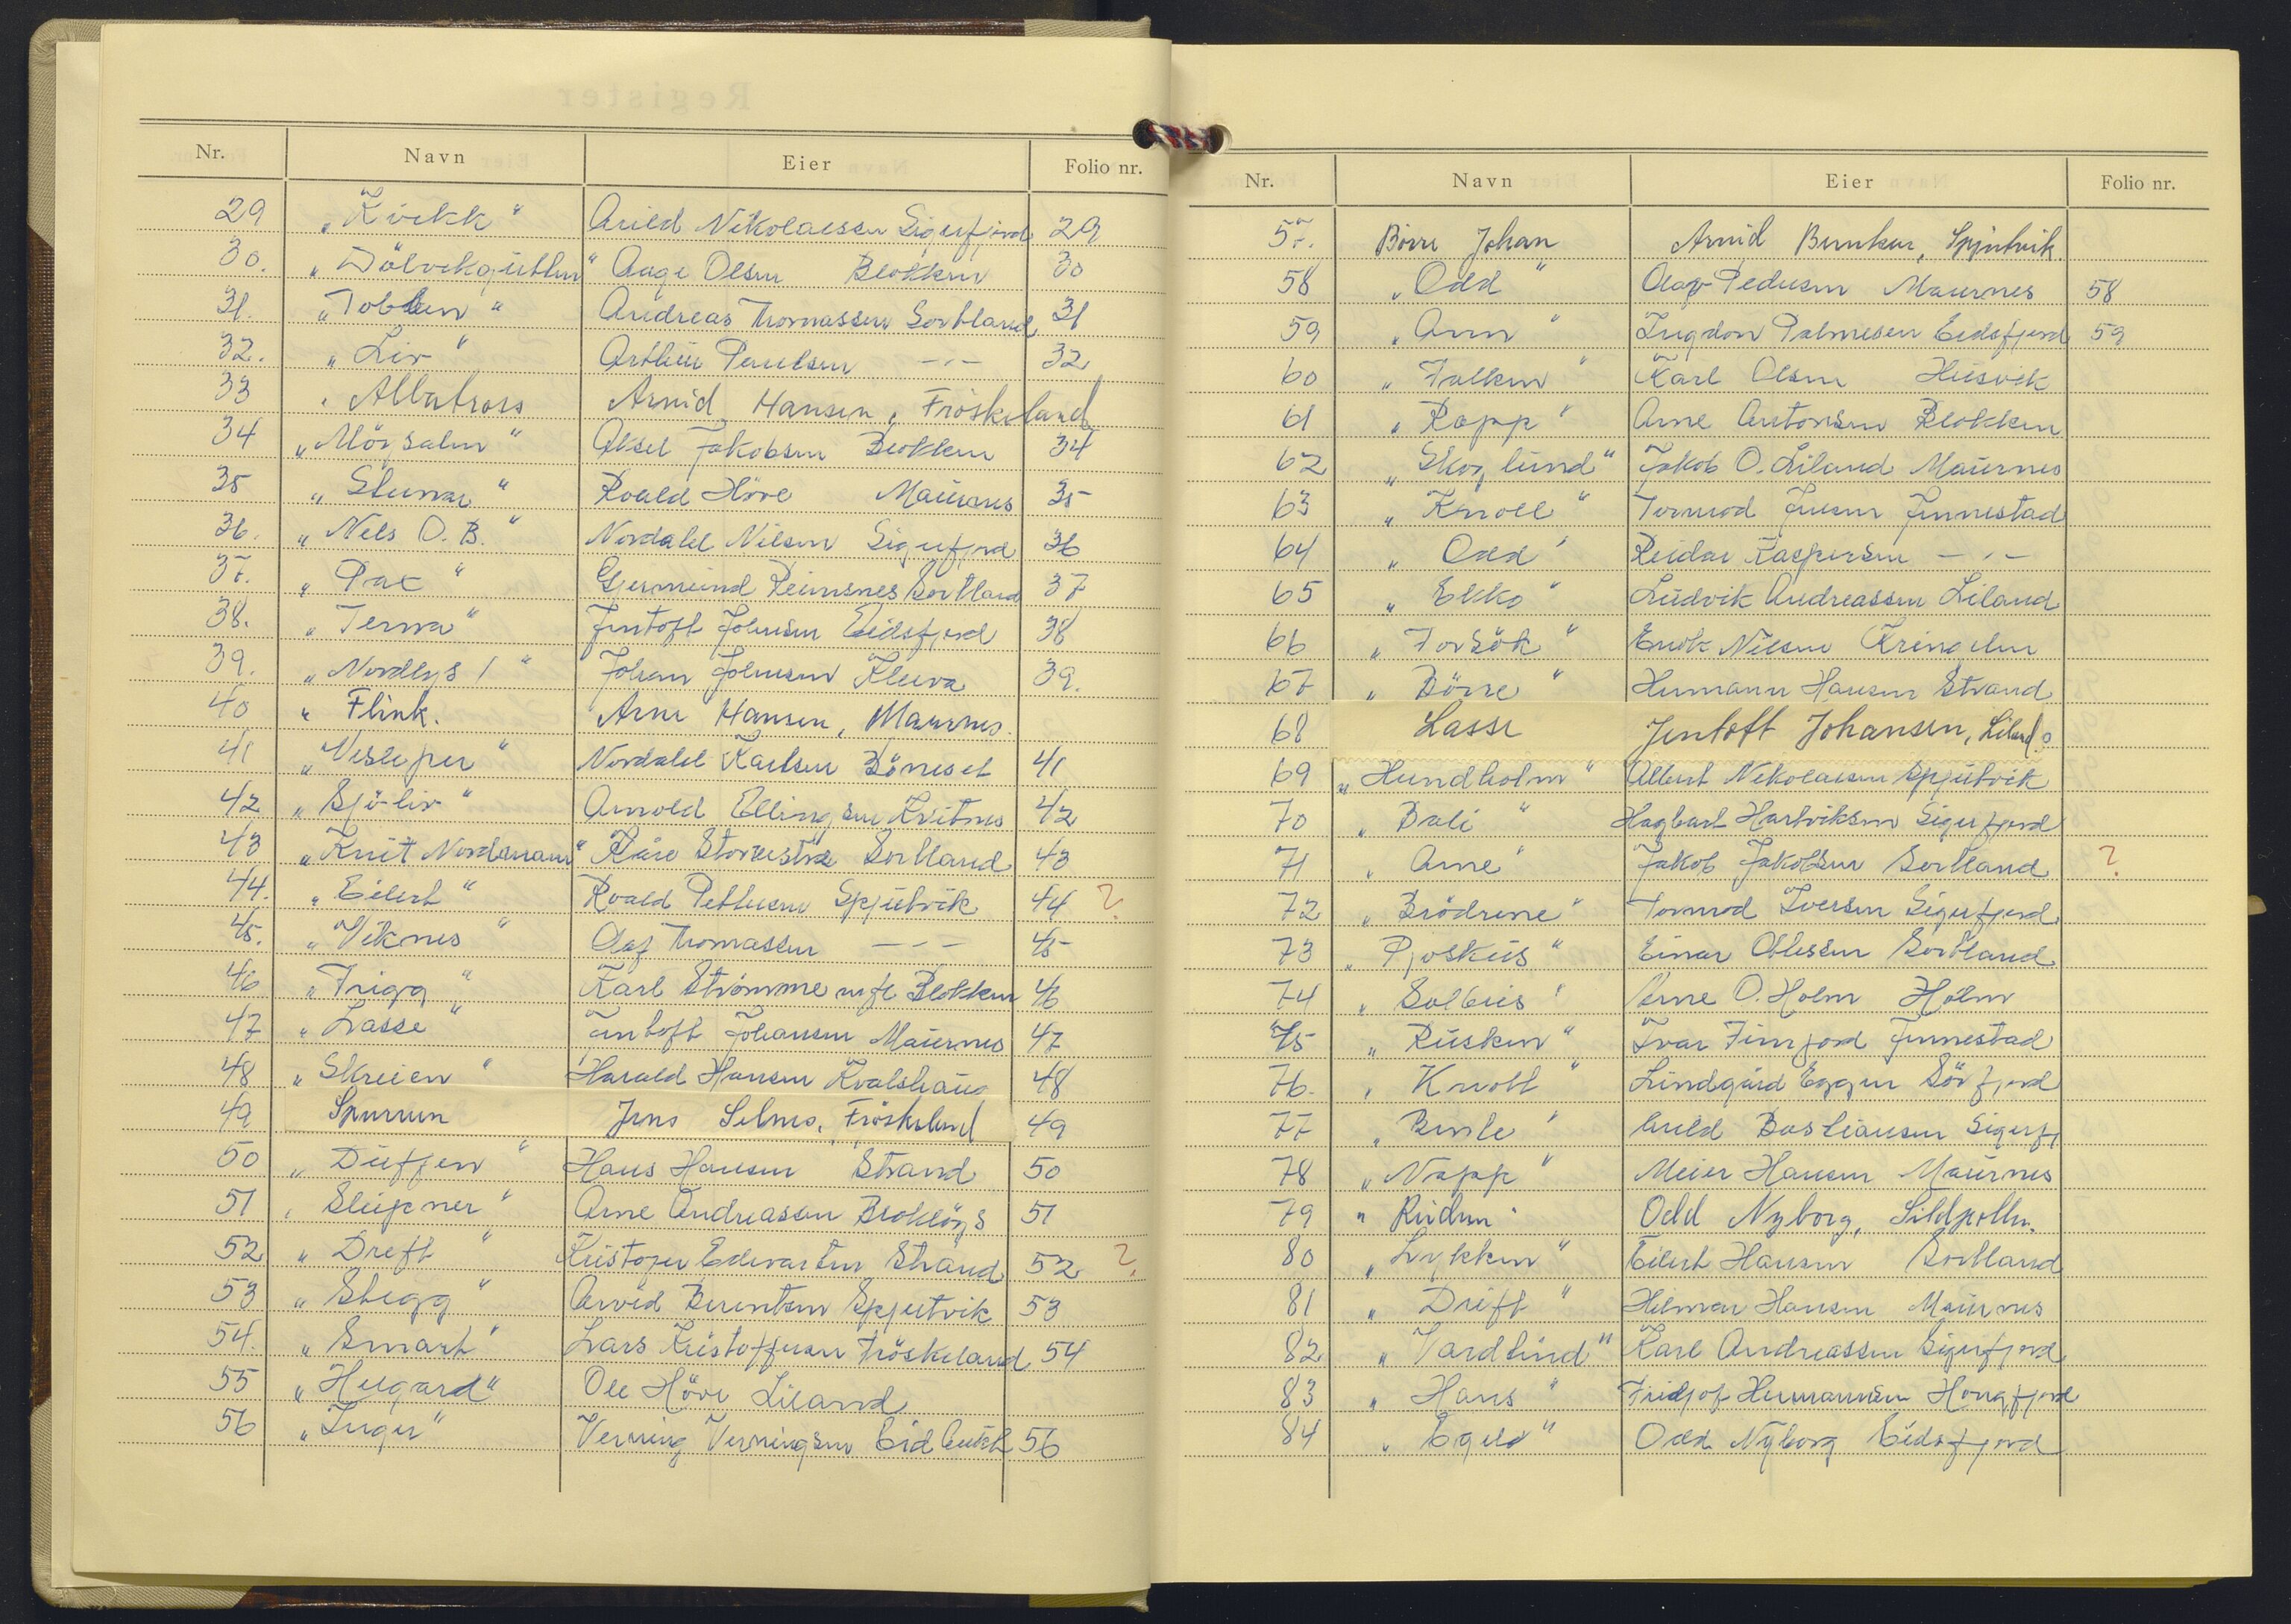 Nr. Navn Eier Folio nr.
29 „Kvikk“ Arild Nikolaissen Sigerfjord 29
30. „Dölvikgutten“ Aage Olsen Blokken 30
31. „Tobben“ Andreas Thomassen Sortland 31
32. „Liv“ Arthur Paulsen -"- 32
33 „Albatross Arvid Hansen, Fröskeland
34 „Mörsalen“ Aksel Jakobsen Blokken 34
35 „Stunar“ Roald Höve Maurnes 35
36. „Nels O.B.“ Nordahl Nilsen Sigerfjord 36
37. „Pax“ Germund Reinsnes Sortland 37
38. „Terna“ Jentoft Johnsen Eidsfjord 38
39. „Nordlys I“ Johan Johnsen Kleiva 39.
40 „Flink. Arne Hansen, Maurnes.
41 „Vesleper“ Nordahl Karlsen Böneset 41
42 „Sjö-liv“ Arnold Ellingsen Kvitnes 42
43 „Knut Nordmann“ Kåre Sortland 43
44. „Eilert“ Roald Pettersen Spjutvik 44 ?
45. „Viknes“ Olaf Thomassen -"- 45
46 „Trigg“ Karl Strømme Blokken 46
47 „Lasse“ Jentoft Johansen Maurnes 47
48 „Skreien“ Harald Hansen Kvalshaug 48
49 Spurven Jens Selnes, Fröskeland 49
50 „Duffen“ Hans Hansen Strand 50
51 „Sleipner“ Arne Andreassen 51
52 „Dreft“ Kristofer Edvartsen Strand 52 ?
53 „Stegg“ Arvid Berentsen Spjutvik 53
54. „Smart“ Lars Kristoffersen Fröskeland 54
55 „Helgard“ Ole Höve Liland
56 „Inger“ Verning Verningsen Eid 56
Nr. Navn Eier Folio nr.
57. Börre Johan Arvid Berntsen, Spjutvik.
58 „Odd“ Olav Pedersen Maurnes 58
59 „Ann“ Ingdon Palmesen Eidsfjord 59
60 „Falken“ Karl Olsen Husvik
61 „Rapp“ Arne Antonsen Blokken
62 „Skoglund“ Jakob O. Liland Maurnes
63 „Knoll“ Tormod Jensen Jennestad
64 „Odd“ Reidar Kaspersen -"-
65 „Ekko“ Ludvik Andreassen Liland
66 „Forsök“ Enok Nilsen Kringelen
67 „Börre“ Hermann Hansen Strand
68 Lasse Jentoft Johansen, Liland.
69 „Hundholm“ Albert Nikolaisen Spjutvik
70 „Bali“ Hagbart Hartviksen Sigerfjord
71 „Arne“ Jakob Jakobsen Sortland ?
72 „Brödrene“ Tormod Iversen Sigerfjord
73 „Pjoskus“ Einar Sortland
74 „Solbris“ Arne O. Holm Holm
75 „Rusken“ Ivar Finfjord Jennestad
76. „Knott“ Lundgård Eggen Sörfjord
77 „Bente“ Arild Bastiansen Sigerfj
78 „Napp“ Meier Hansen Maurnes
79 „Ruden“ Odd Nyborg, Sildpollen.
80 „Lykken“ Eilert Hansen Sortland
81 „Drift“ Helmer Hansen Maurnes
82 „Vardtind“ Karl Andreassen Sigerfjord
83 „Hans“ Fridjof Hermannsen Hognfjord
84 „Egil“ Odd Nyborg Eidsfjord